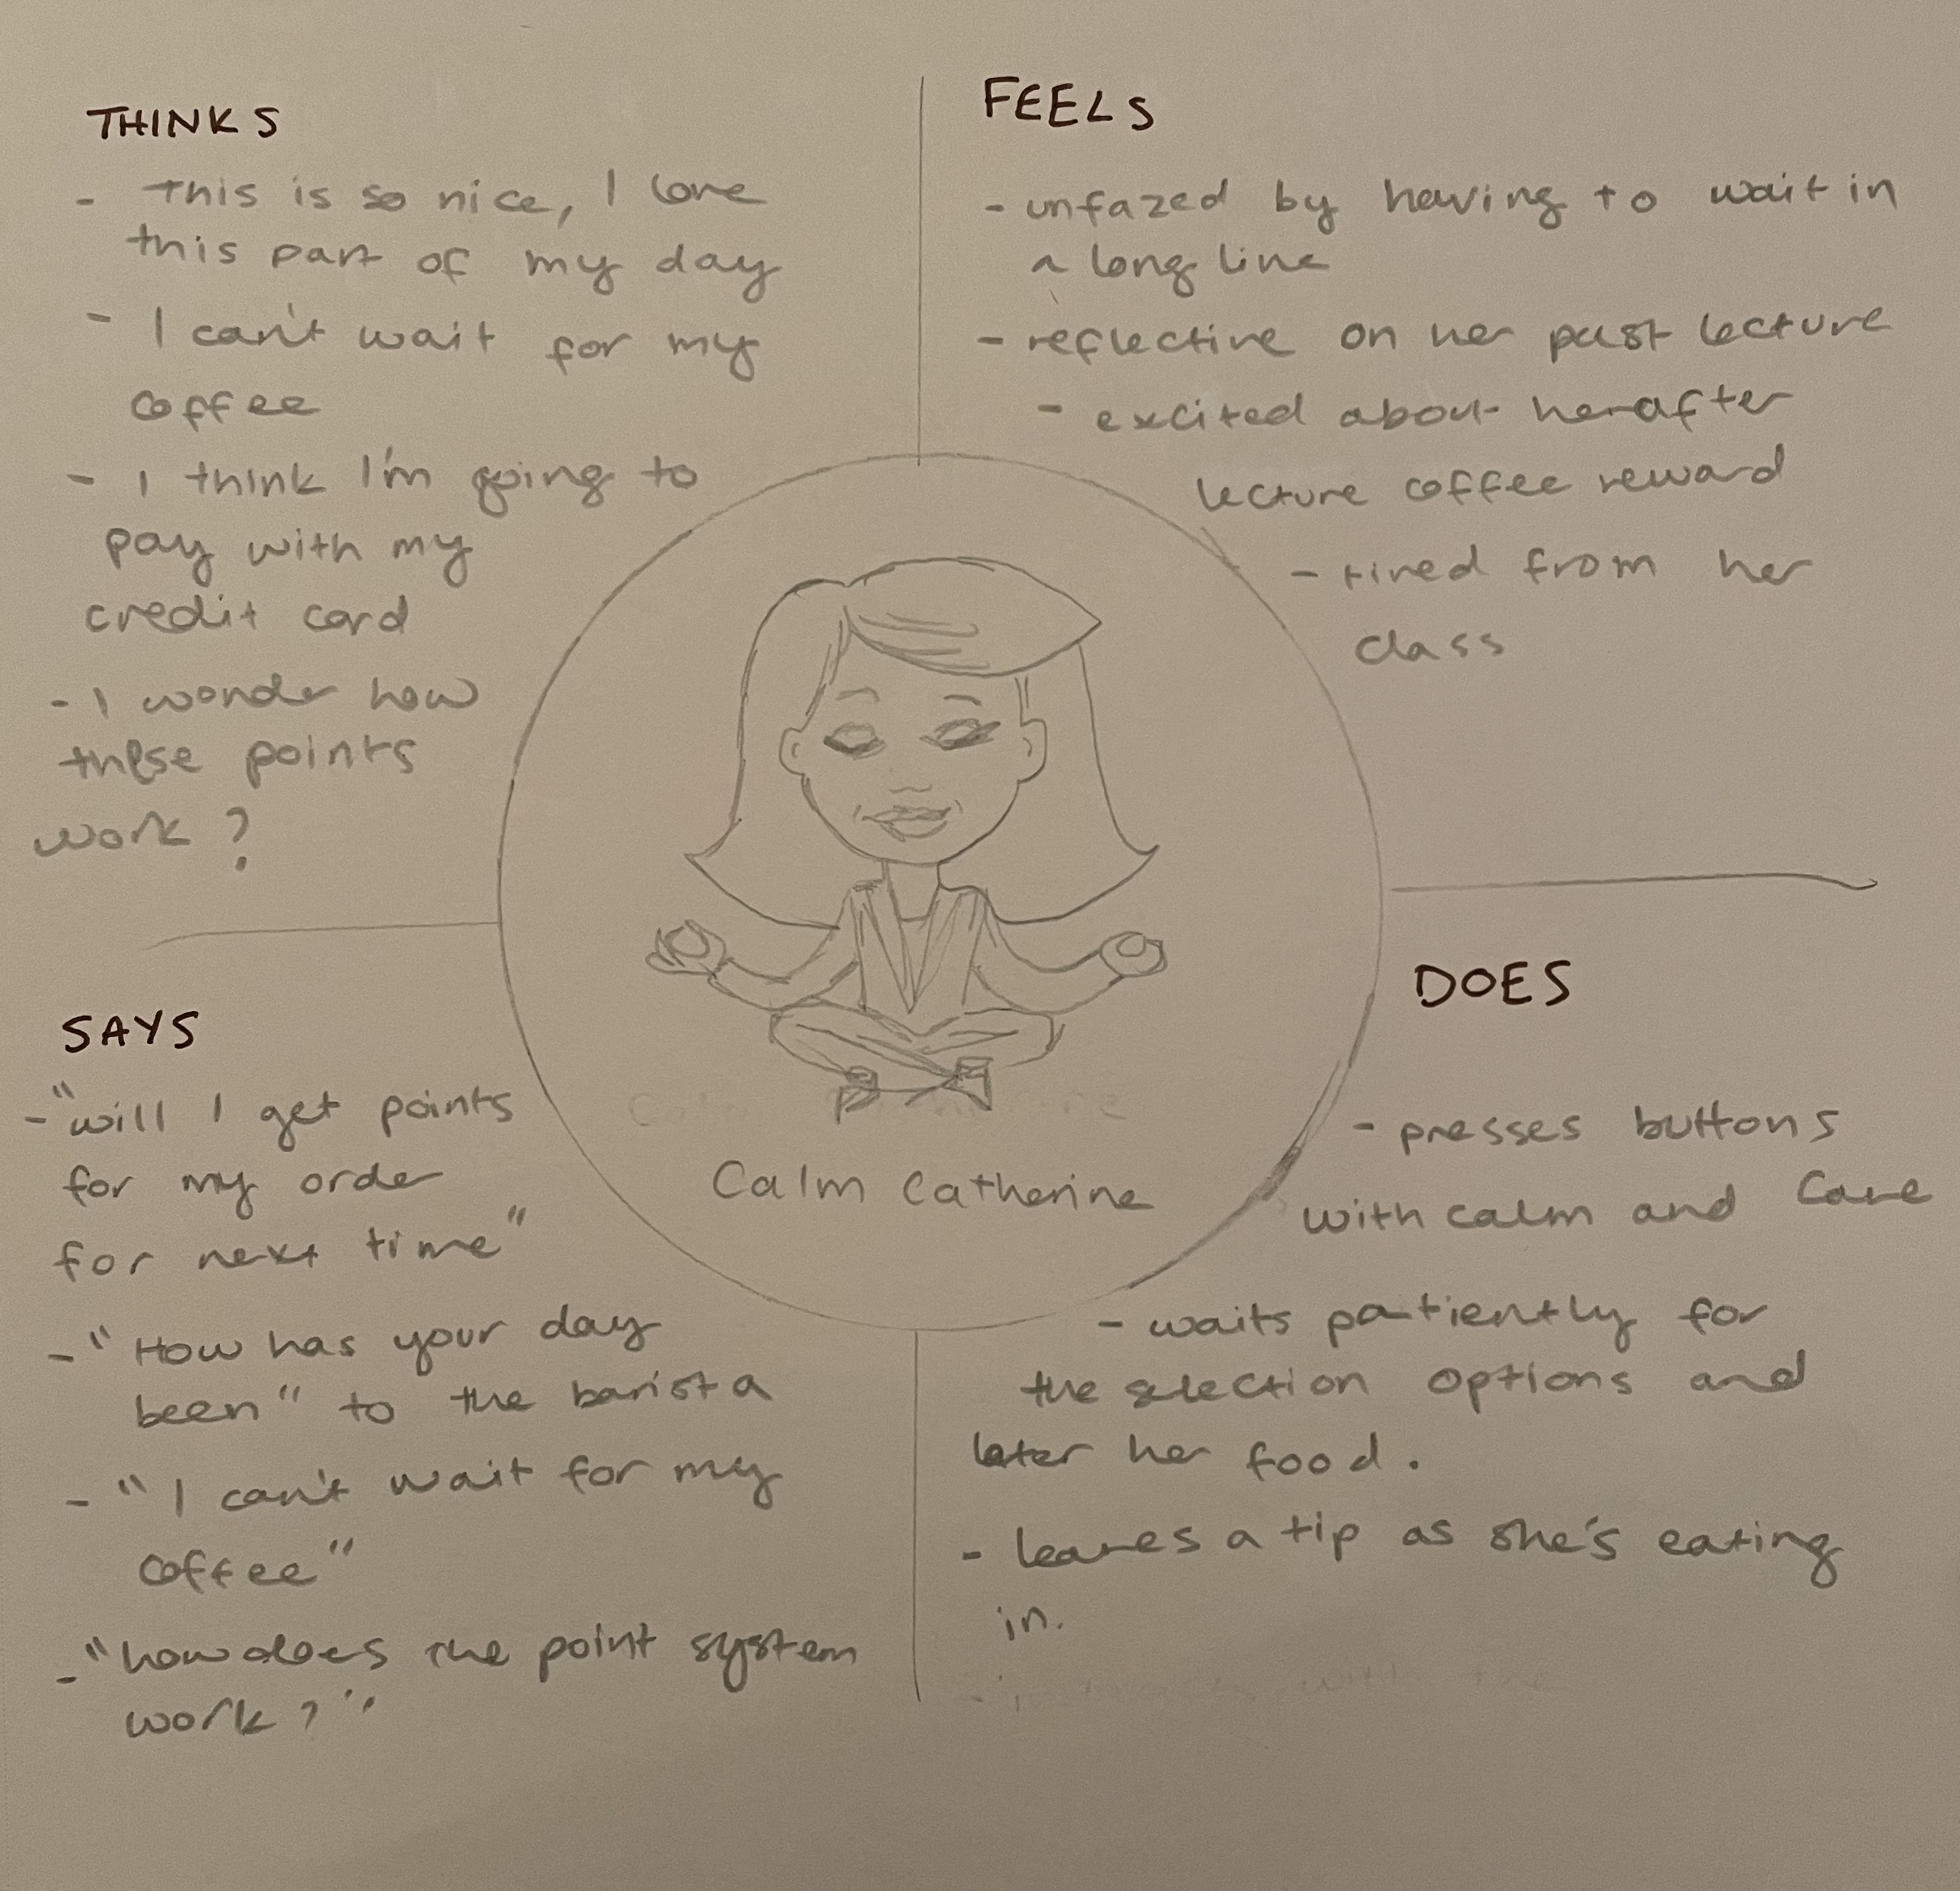 THINKS
- This is so nice, I love
this part of my day
- I can't wait for my
coffee
- I think I'm going to
pay with my
credit card
- I wonder how
these points
work?
FEELS
- unfazed by having to wait in
a long line
- reflective on her past lecture
- excited about her after
lecture coffee reward
- tired from her
class
Calm Catherine
SAYS
- "will I get points
for my order
for next time"
- "How has your day
been" to the barista
- "I can't wait for my
coffee"
- "how does the point system
work?"
DOES
- presses buttons
with calm and care
- waits patiently for
the selection options and
later her food.
- leaves a tip as she's eating
in.